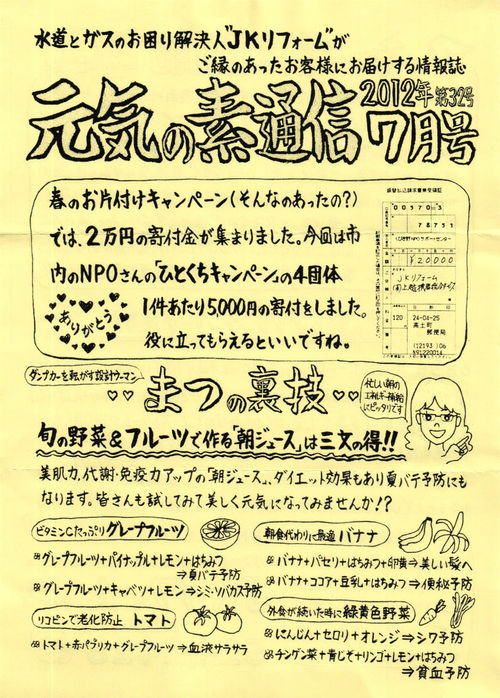 水道とガスのお困り解決人"JKリフォーム"が
ご縁のあったお客様にお届けする情報誌
元気の素通信
2012年 第32号
7月号
春のお片付けキャンペーン(そんなのあったの?)
では、2万円の寄付金が集まりました。今回は市
内のNPOさんの「ひとくちキャンペーン」の4団体
1件あたり5,000円の寄付をしました。
役に立ってもらえるといいですね。
ありがとう
00570
78751
¥20000
JKリフォーム
120
24-04-25
高土町
郵便局
(12193)06
N91220014
ダンプカーを転がす設計ウーマン
まつの裏技
忙しい朝の
エネルギー補給
にピッタリです
旬の野菜&フルーツで作る「朝ジュース」は三文の得!!
美肌力、代謝・免疫力アップの「朝ジュース」、ダイエット効果もあり夏バテ予防にも
なります。皆さんも試してみて美しく元気になってみませんか!?
ビタミンCたっぷり グレープフルーツ
グレープフルーツ+パイナップル+レモン+はちみつ
⇒夏バテ予防
グレープフルーツ+キャベツ+レモン⇒シミ・ソバカス予防
リコピンで老化防止 トマト
トマト+赤パプリカ+グレープフルーツ⇒血液サラサラ
朝食代わりに最適 バナナ
バナナ+パセリ+はちみつ+卵黄⇒美しい髪へ
バナナ+ココア+豆乳+はちみつ⇒便秘予防
外食が続いた時に緑黄色野菜
にんじん+セロリ+オレンジ⇒シワ予防
チンゲン菜+青じそ+リンゴ+レモン+はちみつ
⇒貧血予防